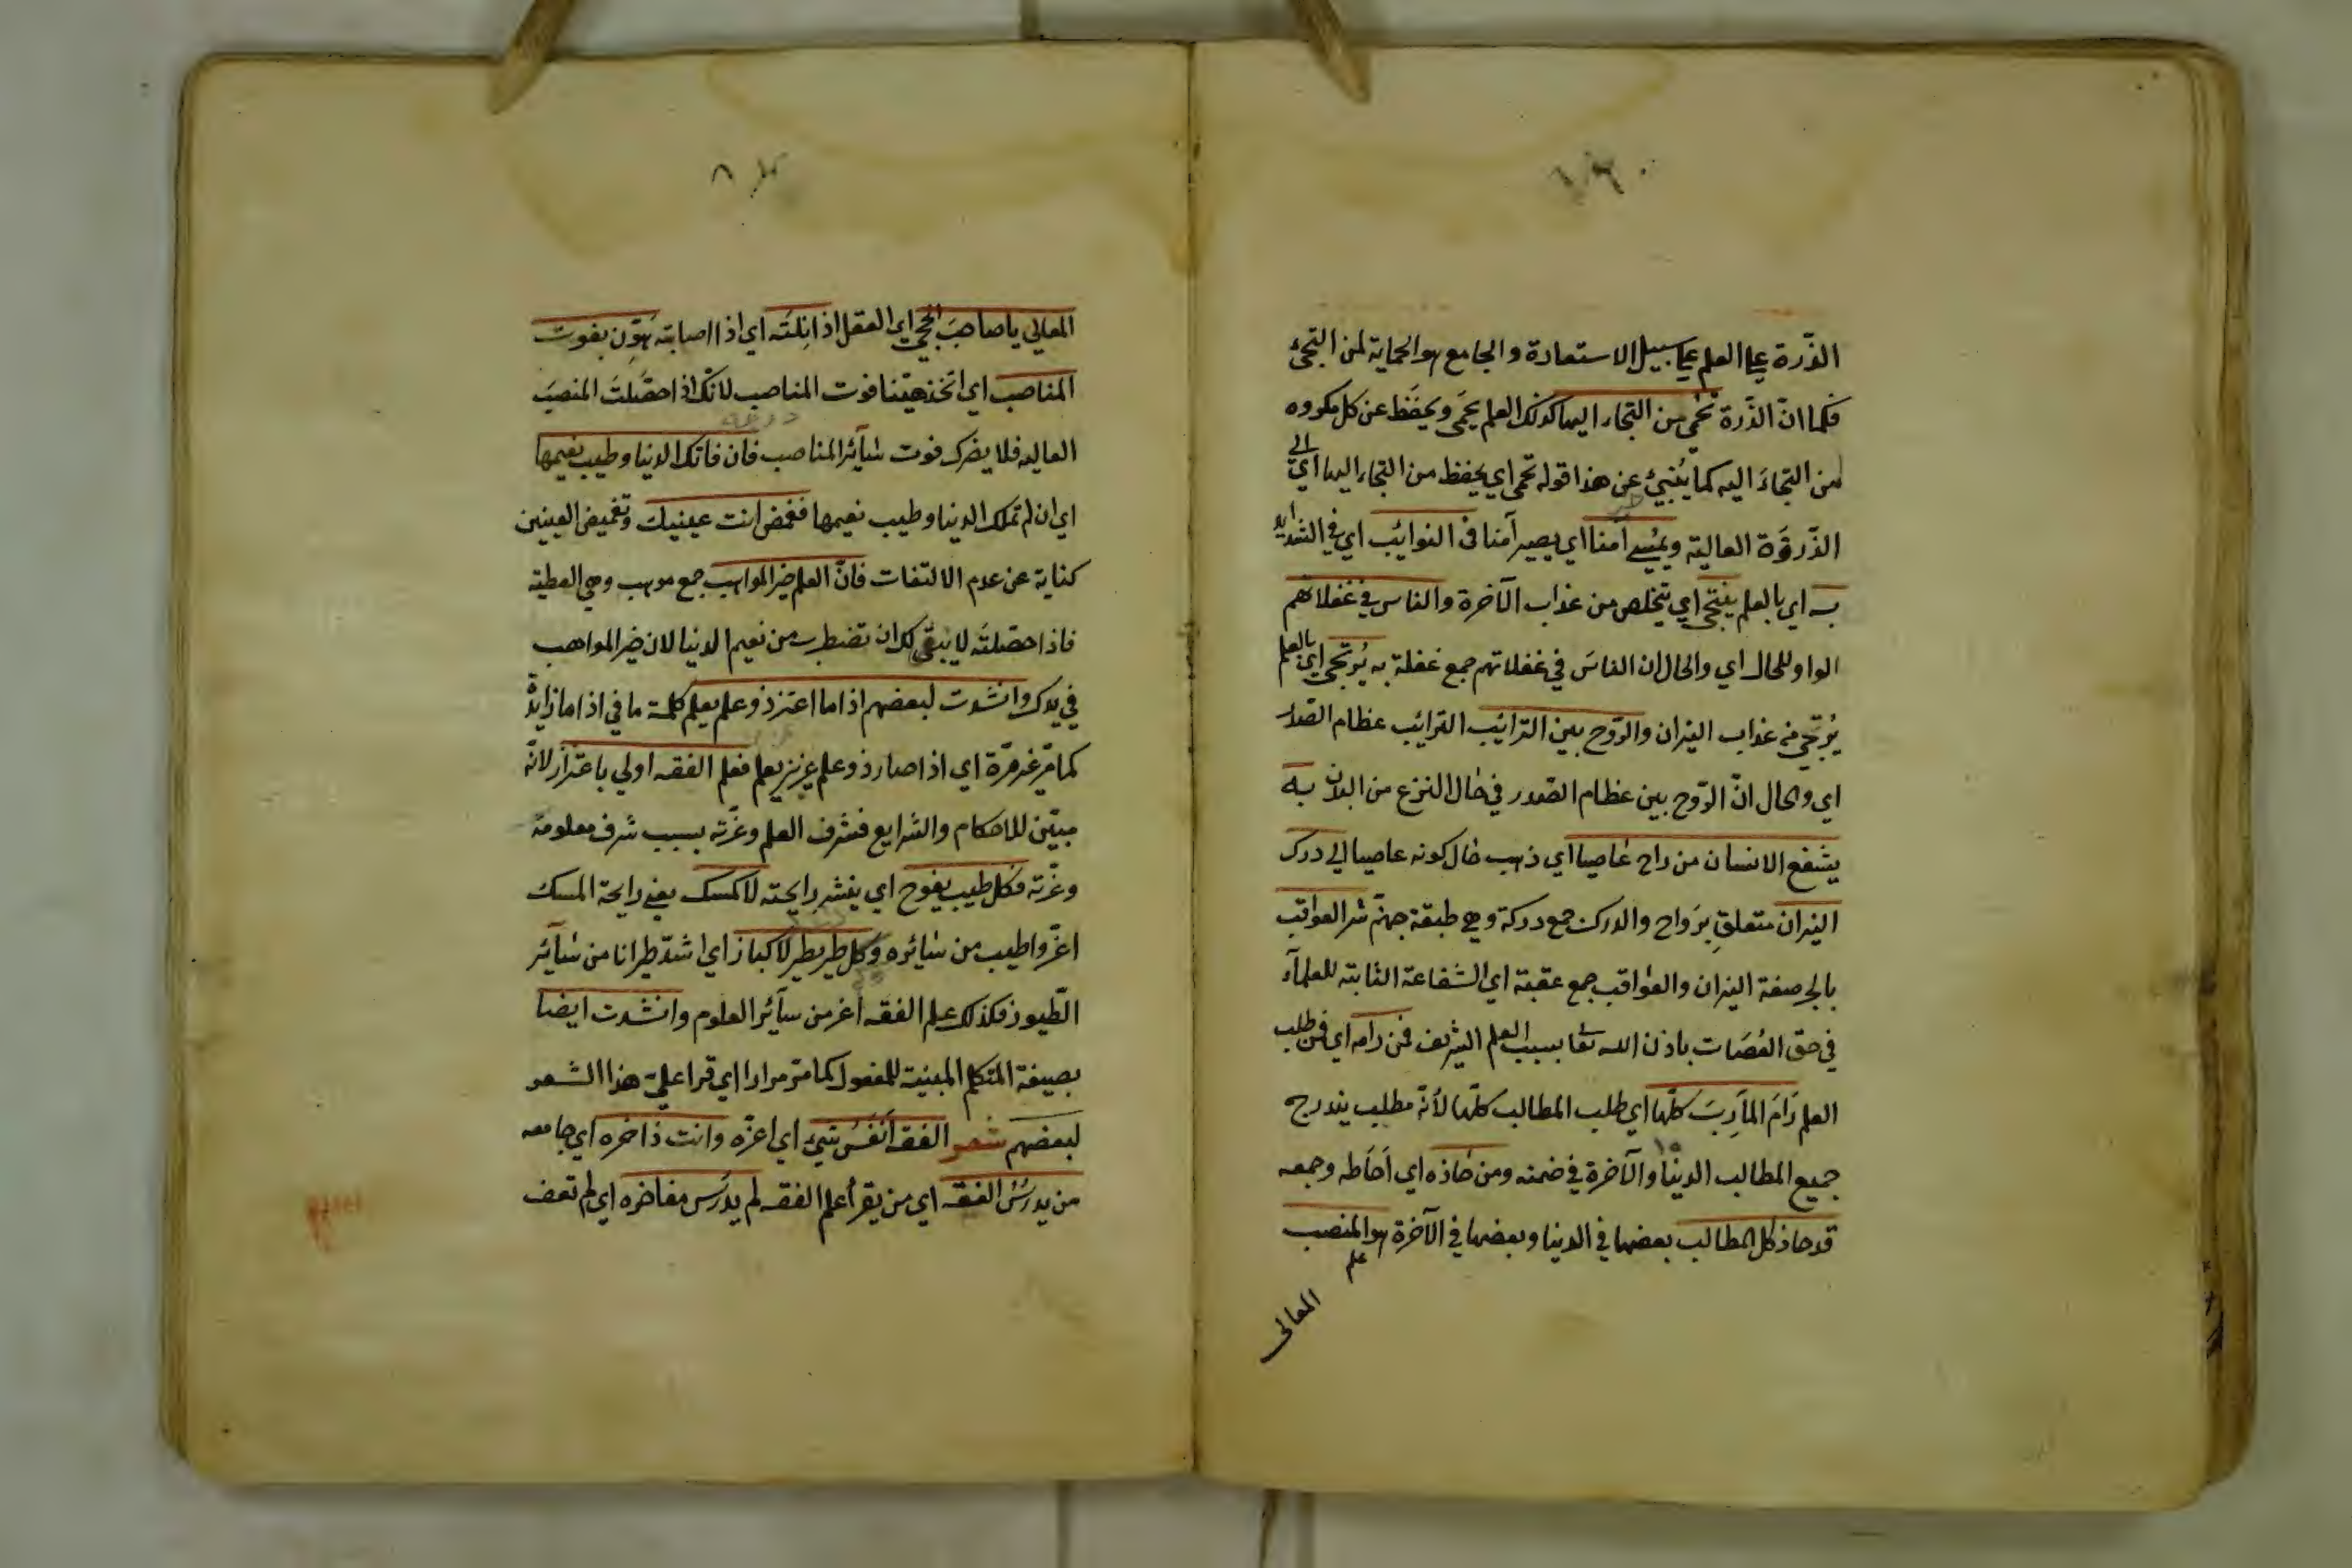 الذّروة على العلم على سبيل الاستعارة والجامع هو الحماية لمن التجئ
فكما انّ الذّروة تحمي من التجاء اليها كذلك العلم يحمَى ويحفظ عن كل مكروه
من التجاءَ اليه كما يُنبئ عن هذا قوله تحمى اي يحفظ من التجاء اليها اي الى
الذّروَة العالية ويمُسي آمنا اي يصير آمنا في النوائب اي في الشدايد
به اي بالعلم ينتجى اي يتخلص من عذاب الآخرة والناس في غفلاتهم
الواو للحال اي والحال ان الناسَ في غفلاتهم جمع غفلة به يُرتجى اي بالعلم
يُرتجى منه عذاب النيران والرّوح بين الترائب الترائب عظام الصّدر
اي والحال انّ الرّوح بين عظام الصّدر في حال النزع من البدن به
يشفع الانسان من راح عاصيا اي ذهب حال كونه عاصيا الى درك
النيران متعلق بِرَواح والدرك جمع دركة وهي طبقة جهنّم شر العواقب
بالجر صفة النيران والعواقب جمع عقبة اي الشفاعة الثابته للعلمآء
في حق العُصَات باذن الله تعا بسبب العلم الشريف فمن رامه اي فمن طلب
العلم رَامَ المآرِبَ كلّها اي طلب المطالب كلّها لأنّه مطلب يندرج
جميع المطالب الدنيا والآخرة في ضمنه ومن حازه اي اَحَاطه وجمعه
قد حاز كل المطالب بعضها في الدنيا وبعضها في الآخرة هو المنصب
علم
المعالى
المعالي يا صاحبَ الحجى اي العقل اذا نِلتَه اي اذا اصابته هَوّن بفوت
المناصب اي اتخذ هيّنا فوت المناصب لانّك اذا حصّلتَ المنصبَ
العاليه فلا يضرك فوت سآئر المناصب فان فاتك الدنيا وطيب نعيمها
اي ان لم تملك الدنيا وطيب نعيمها فغمض انت عينيك وتغميض العينين
كناية عن عدم الالتفات فانّ العلم خير المواهب جمع موهب وهي العطية
فاذا حصّلته لا يبقى لك ان تضطرب من نعيم الدنيا لان خير المواهب
في يدك وانشدت لبعضهم اذا ما اعتز ذو علم بعلم كلمة ما في اذا ما زايدة
كما مرّ غير مرّة اي اذا صار ذو علم عزيز بعلم فعلم الفقه اولى باعتزاز لانّه
مبيّن للاحكام والشرايع فشرف العلم وعزّته بسبب شرف معلومه
وعزّته فكل طيب يفوح اي ينشر رايحته لا كمسك يعني رايحة المسك
اعزّ واطيب من سائره وكل طير يطير لا كباز اي اشدّ طيرانا من سآئر
الطّيور فكذلك علم الفقه اعز من سآئر العلوم وانشدت ايضا
بصيغة المتكلم المبنية للمفعول كما مرّ مرارا اي قرا عليّ هذا الشعر
لبعضهم شعر الفقه اَنفسُ شئ اي اعزّه وانت ذاخره اي جامعه
من يدرُسْ الفقه اي من يقرأ علم الفقه لم يدرُس مفاخره اي لم تعف